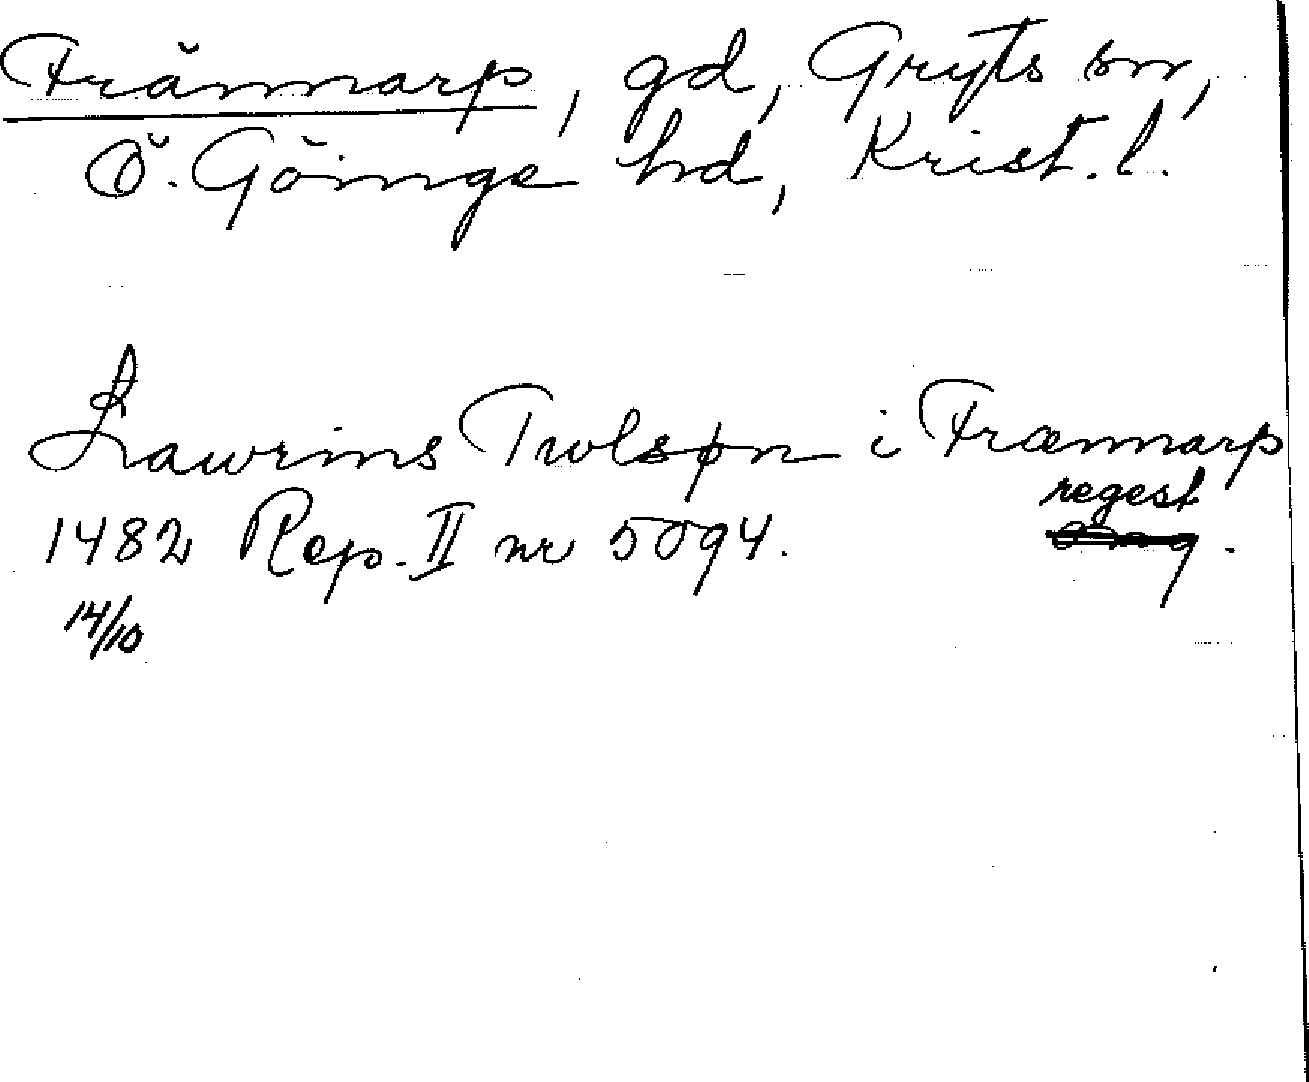 Frännarp, gd, Gryts sn,
Ö. Göinge hd, Krist. l.
Lawrins Twlsøn i Frænnarp
1482 Rep. II nr 5094. regest.
14/10